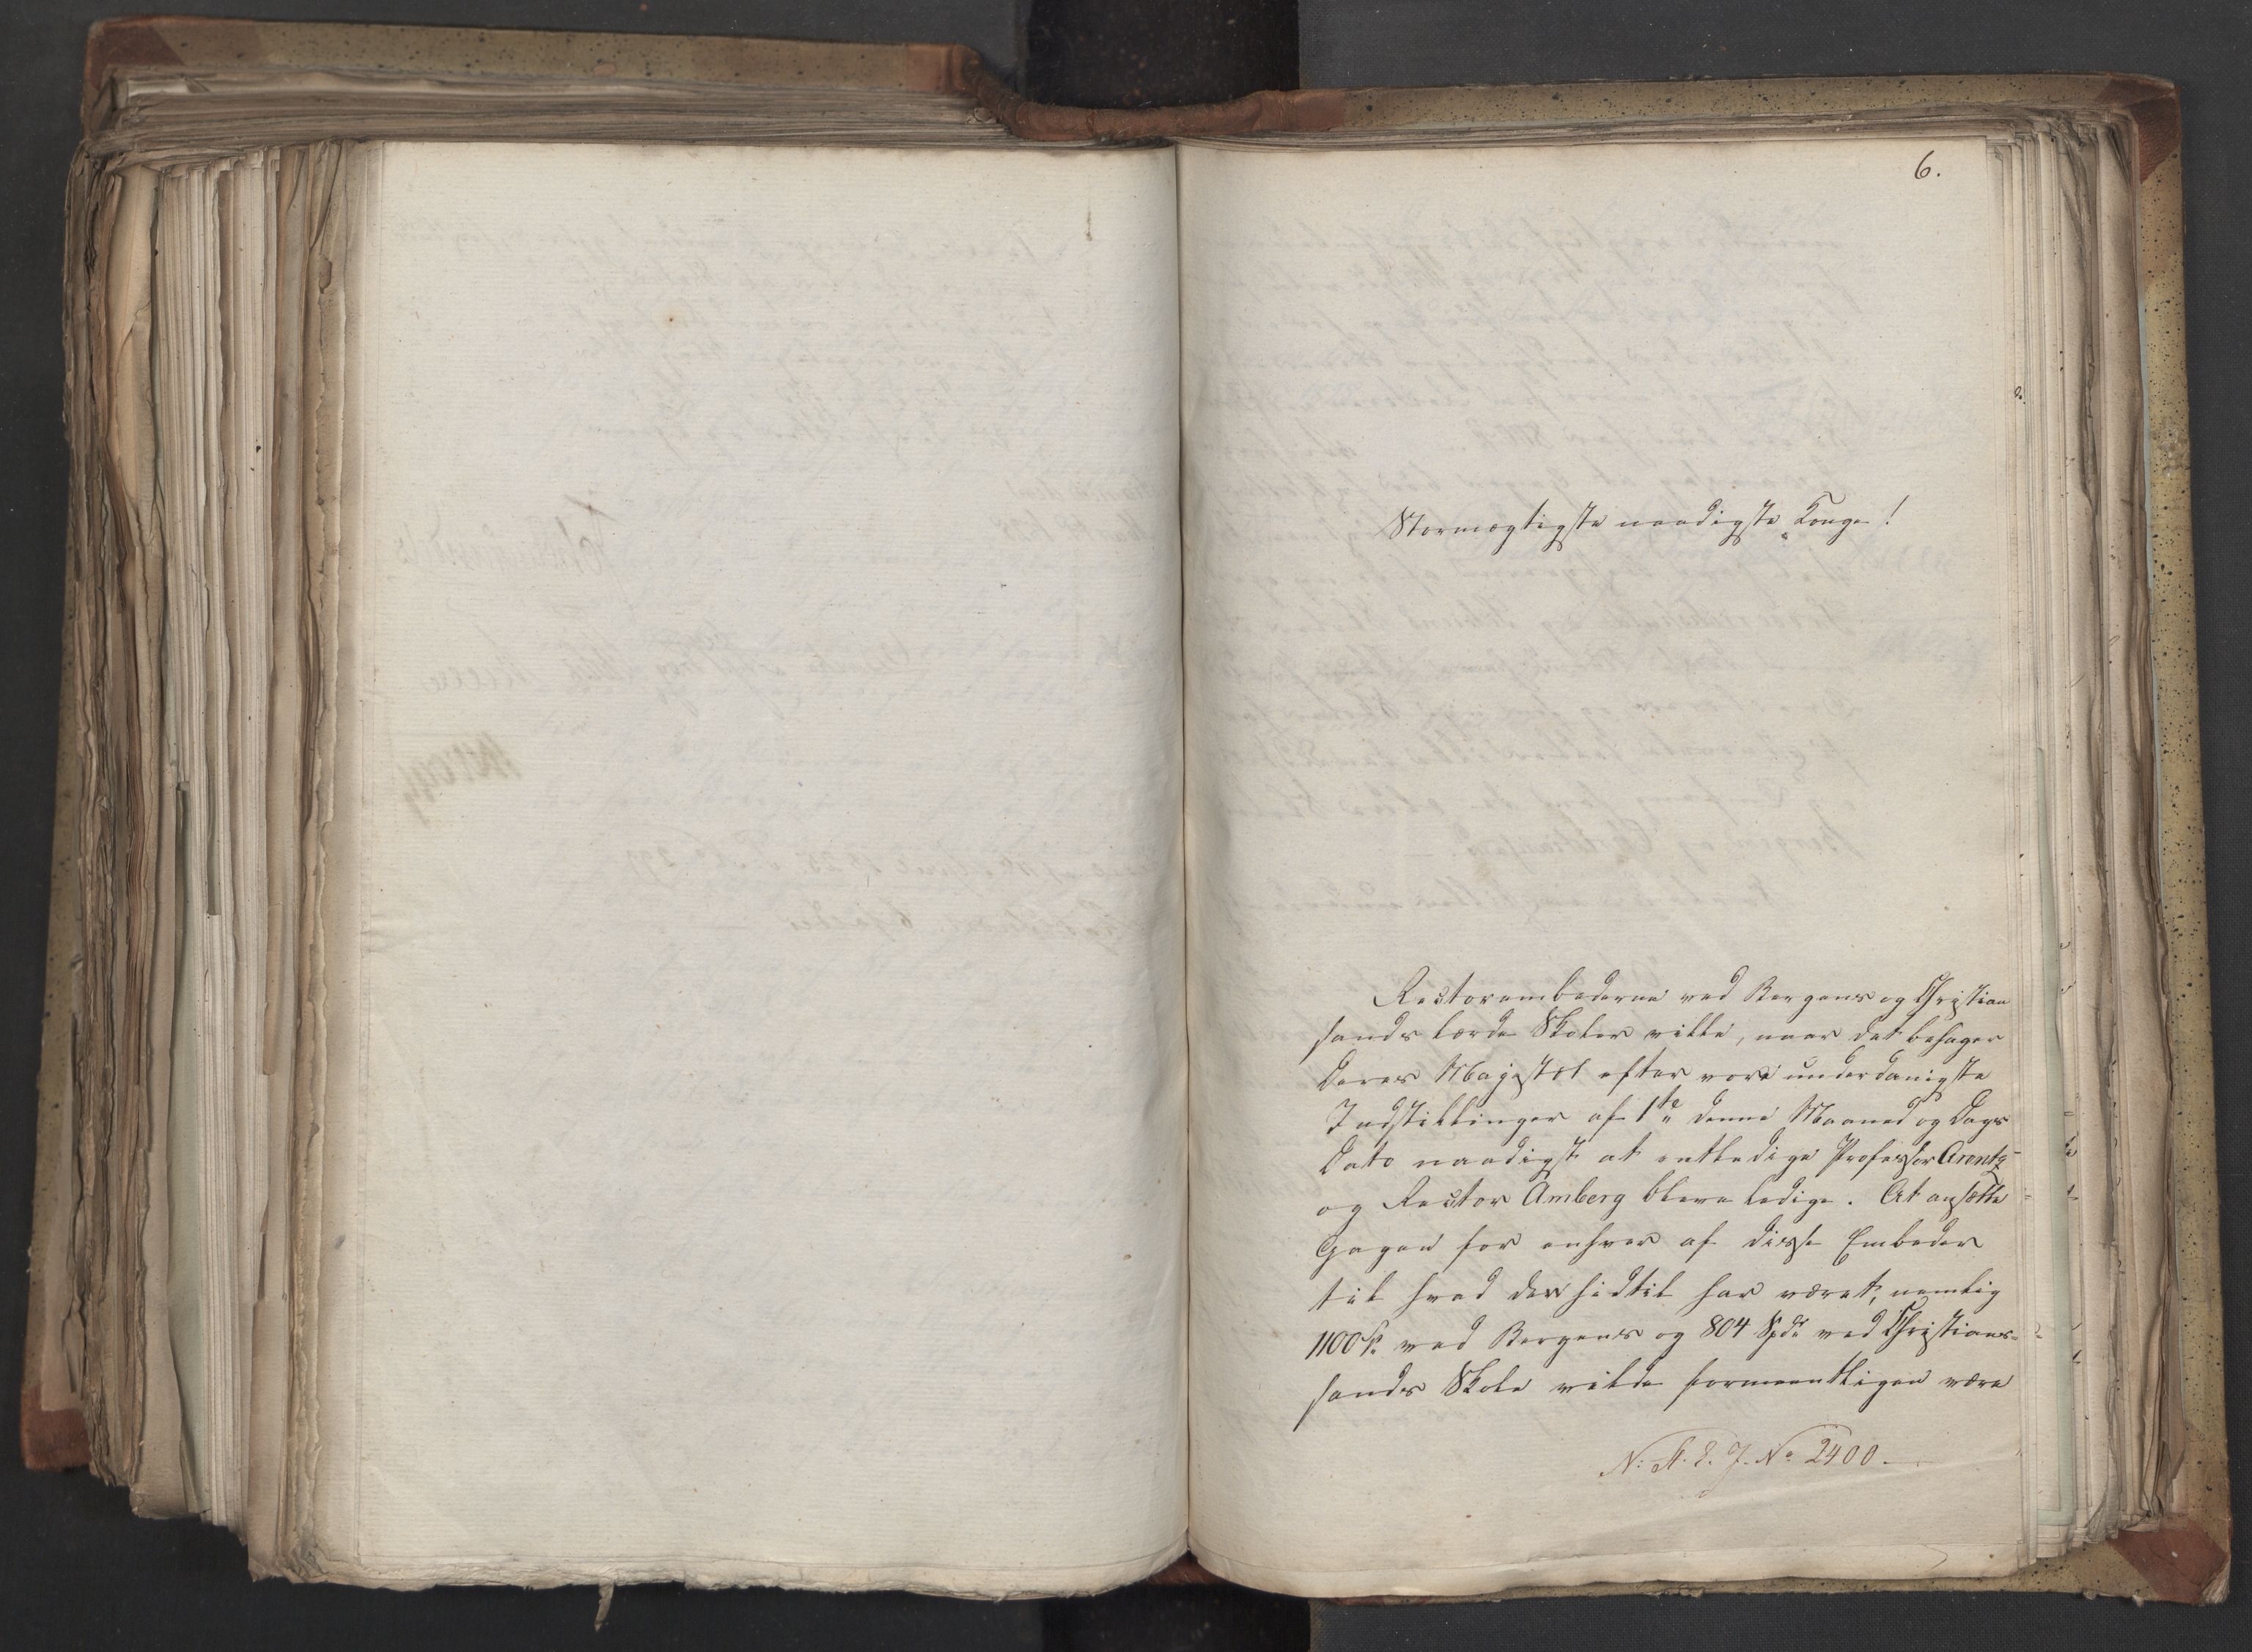 6.
Stormægtigste naadigste Konge!
Rectorembederne ved Bergens og Christian
sands lærde Skoler ville, naar det behager
Deres Majestæt efter vore underdanigste
Indstillinger af 1te denne Maaned og Dags
Dato naadigst at entledige Professor Arentz
og Rector Amberg bleve ledige. At ansætte
Gagen for enhver af disse Embeder
til hvad den hidtil har været, nemlig
1100 Sp. ved Bergens og 804 Spd. ved Christians-
sands Skole vilde formeentligen være
No 2400.